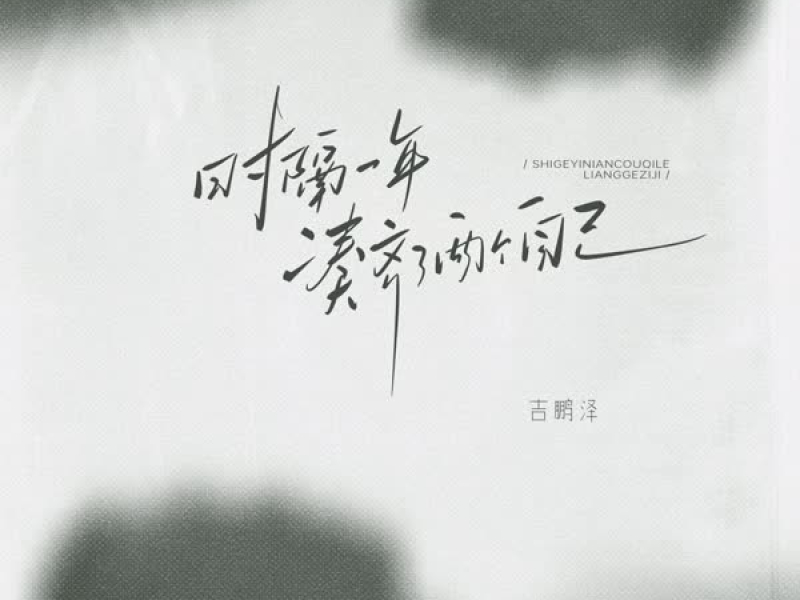 时隔一年
/ SHIGEYINIANCOUQILE
LIANGGEZIJI /
凑齐了两个自己
吉鹏泽